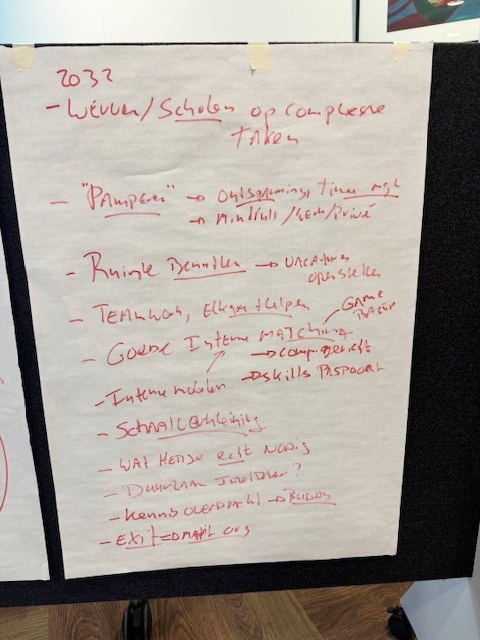 2032
- Werven/Scholen op complexe
taken
- "Pamperen" → Ontspanning, time mgt
→ Mindfull/Werk/Privé
- Ruimte Benutten → Vacatures
openstellen
- Teamwork, Elkaar helpen
- Goede Interne Matching
Game
Based
→ compgericht
- Interne mobien → skills Paspoort
- Schaalverkleining
- Wat heb je echt nodig
- Duurzaam Inzetbaar?
- Kennisoverdracht → Buddy
- Exit = org